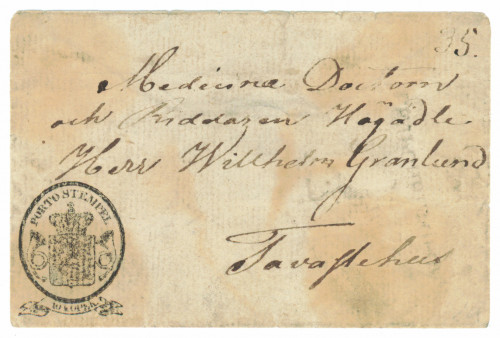 35.
Medicine Doctorn
och Riddaren Högädle
Herr Willhelm Granlund
Tavastehus
PORTO STEMPEL
10 KOPEK.